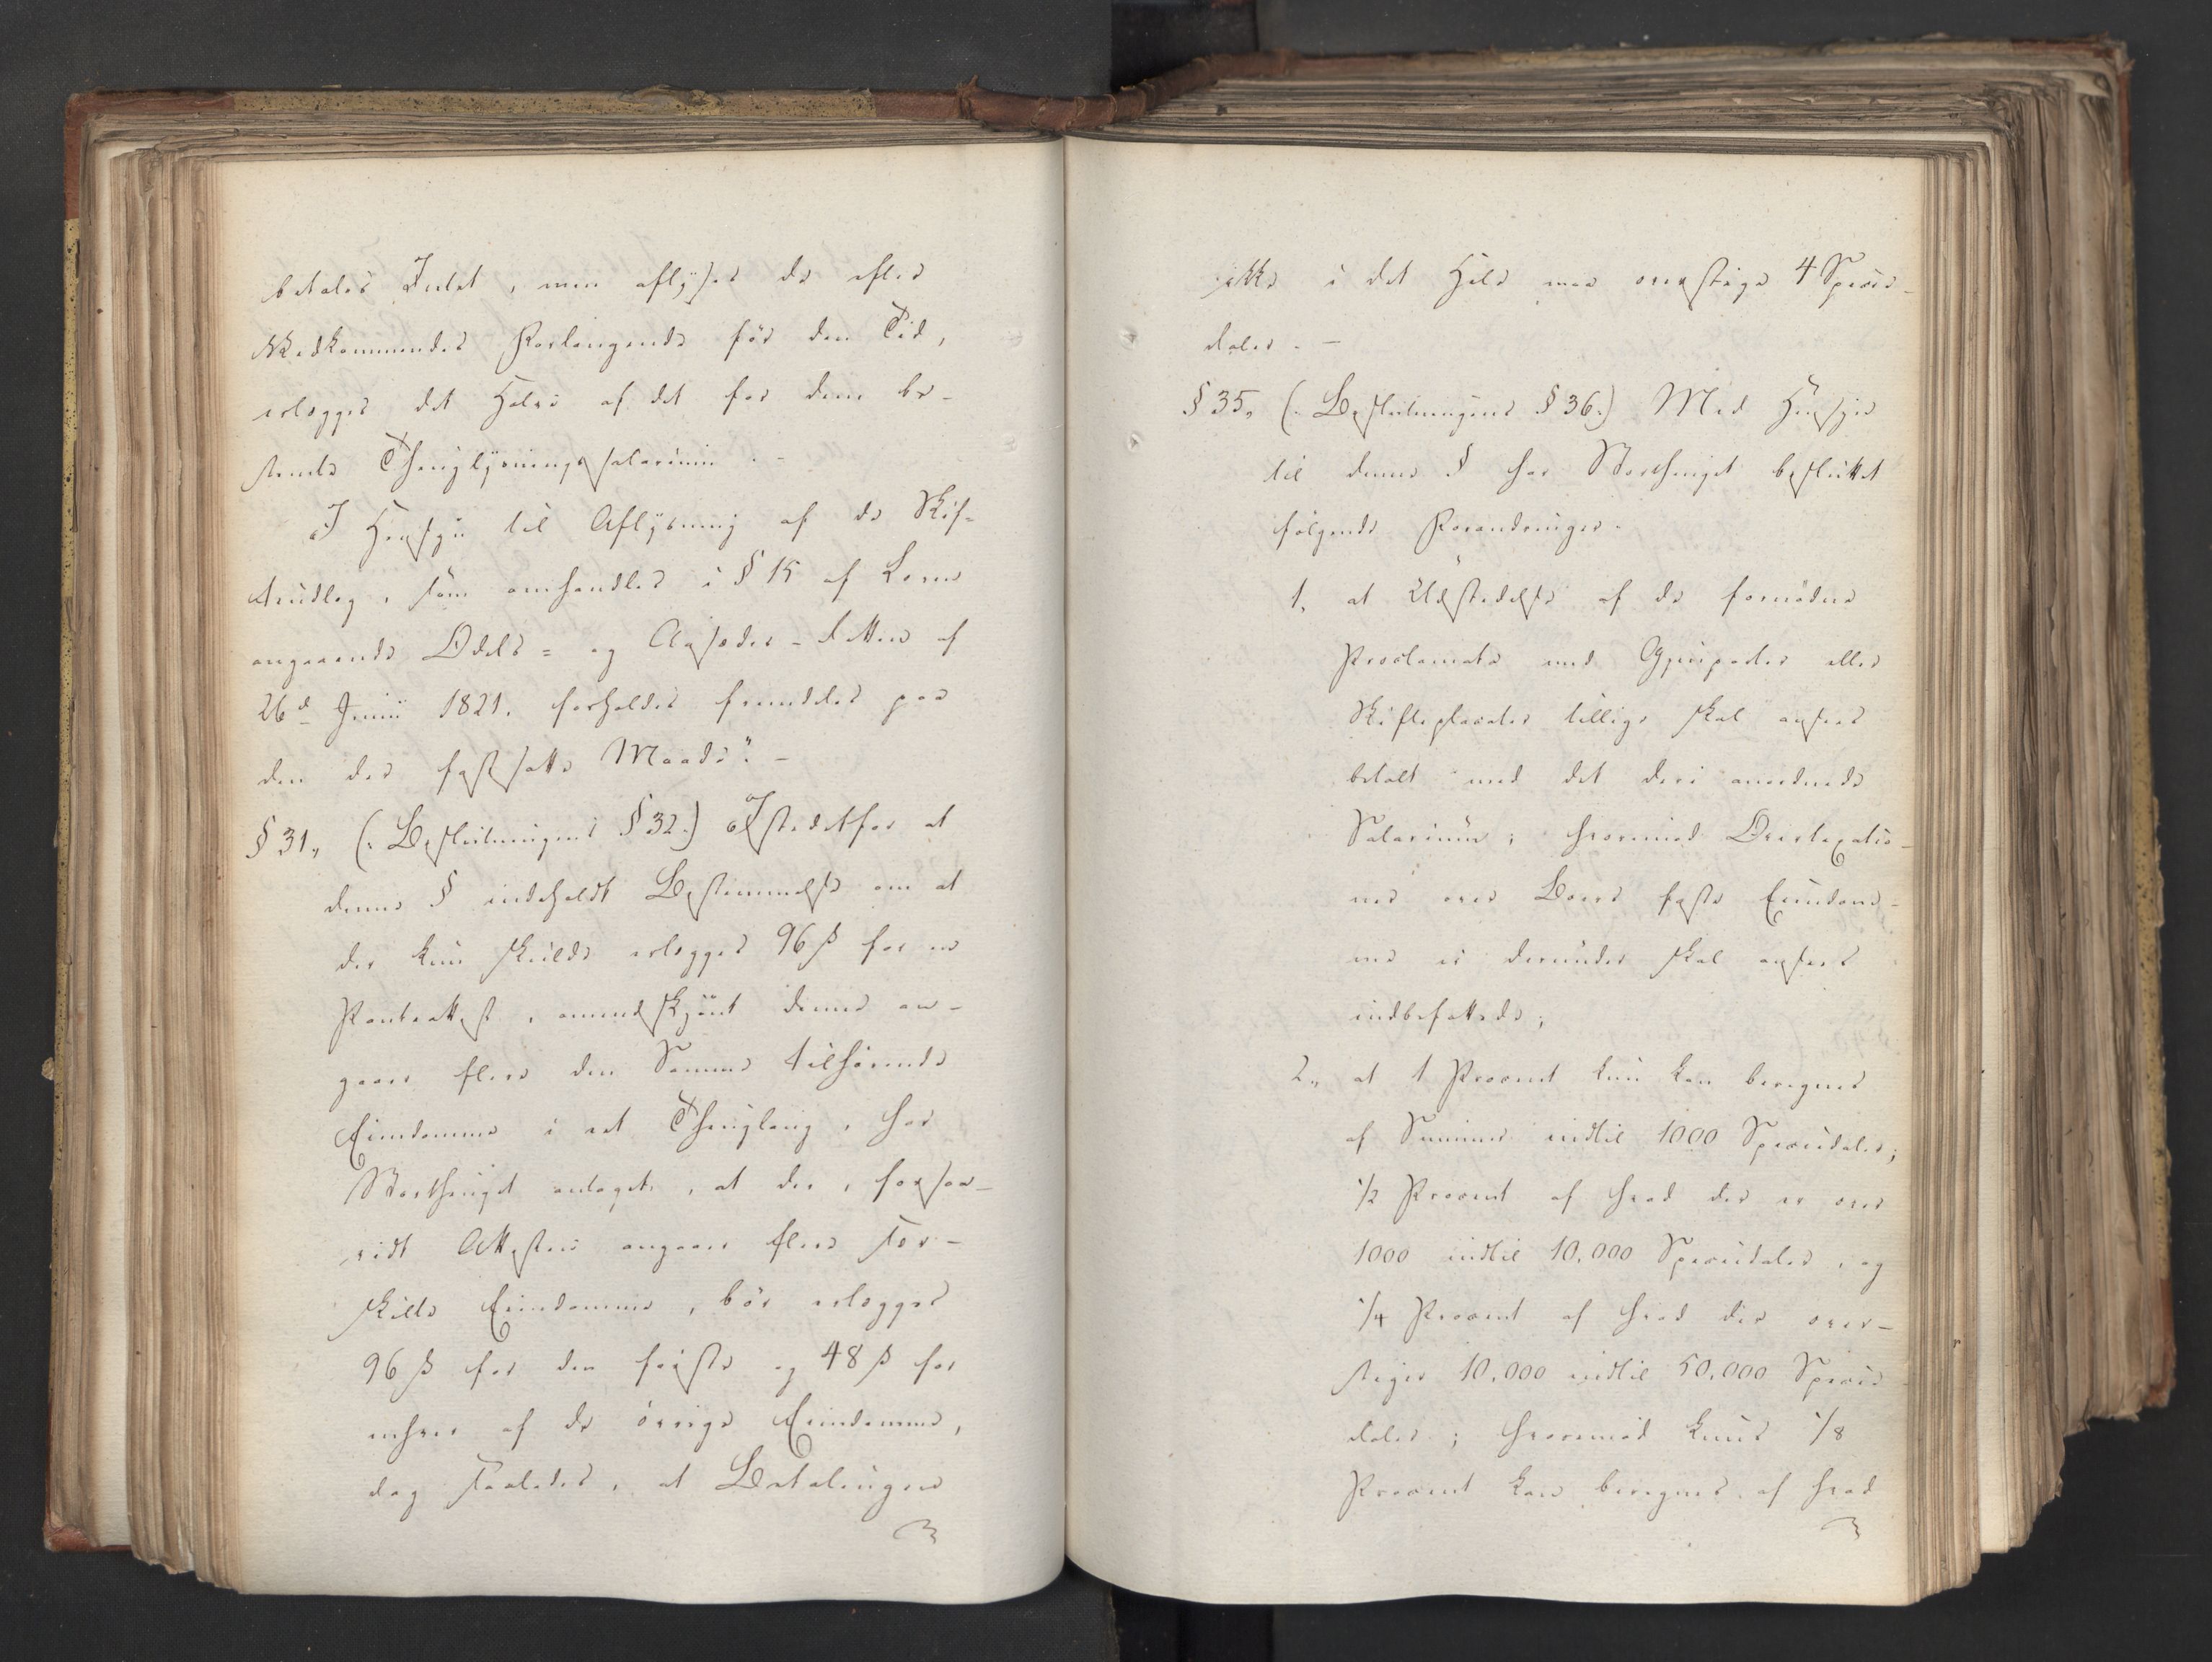 betales Intet, men aflyses de efter
Vedkommendes Forlangende för den Tid,
erlægges det Halve af det for dem be-
stemte Thinglysningssalarium. -
I Hensyn til Aflysning af de Skif-
teudlæg, som omhandles i § 15 af Loven
angaaende Odels= og Aasædes-Retten af
26d Junii 1821. forholdes fremdeles paa
den der fastsatte Maade". -
§ 31, (: Beslutningens § 32.) Istedetfor at
denne § indeholdt Bestemmelse om at
der kun skulde erlægges 96 ß for en
Panteattest, omendskjönt denne an-
gaaer flere den Samme tilhørende
Eiendomme i eet Thinglaug, har
Storthinget antaget, at der, forsaa-
vidt Attesten angaaer flere sær-
skilte Eiendomme, bör erlægges
96 ß for den förste og 48 ß for
enhver af de övrige Eiendomme,
dog saaledes, at Betalingen
ikke i det Hele maa overstige 4 Specie-
daler. -
§ 35, (: Beslutningens § 36.) Med Hensyn
til denne § har Storthinget besluttet
følgende Forandringer.
1, at Udstedelse af de fornødne
Proclamata med Gjenparter eller
Skifteplacater tillige skal ansees
betalt med det deri anordnede
Salarium; hvorimod Overtaxatio-
ner over Boers faste Eiendom-
me ei derunder skal ansees
indbefattede;
2, at 1 Procent kun kan beregnes
af Summer indtil 1000 Speciedaler;
1/2 Procent af hvad der er over
1000 indtil 10,000 Speciedaler, og
1/4 Procent af hvad der over-
stiger 10,000 indtil 50,000 Specie
daler; hvorimod kuns 1/8
Procent kan beregnes af hvad